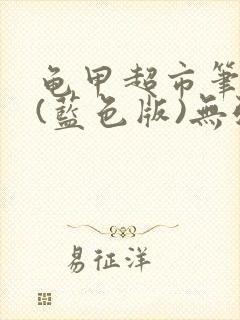 龟甲超市筆
(藍色版)無
易征洋